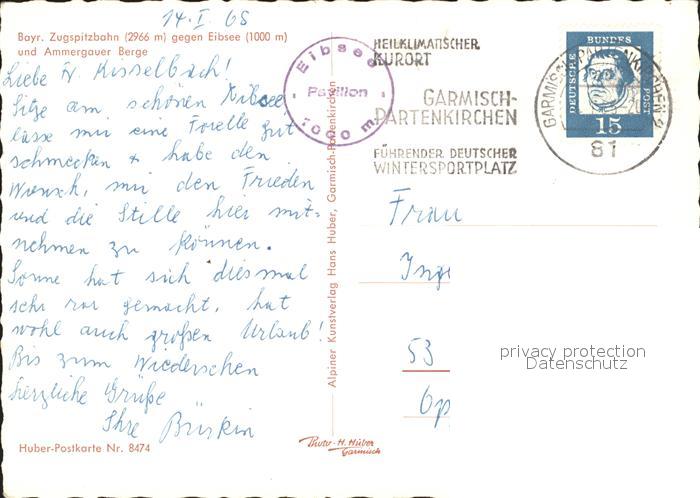 14. I. 65
Bayr. Zugspitzbahn (2966 m) gegen Eibsee (1000 m)
und Ammergauer Berge
Liebe Fr. Kisselbach!
Sitze am schönen Eibsee
lasse mir eine Forelle gut
schmecken & habe den
Wunsch, mir den Frieden
und die Stille hier mit-
nehmen zu können.
Sonne hat sich diesmal
sehr rar gemacht, hat
wohl auch großen Urlaub!
Bis zum Wiedersehen
herzliche Grüße
Ihre
Huber-Postkarte Nr. 8474
Eibsee
Pavillon
1000 m
Alpiner Kunstverlag Hans Huber, Garmisch-Partenkirchen
Photo-H. Huber
Garmisch
HEILKLIMATISCHER
KURORT
GARMISCH-
PARTENKIRCHEN
FÜHRENDER DEUTSCHER
WINTERSPORTPLATZ
DEUTSCHE BUNDESPOST
15
GARMISCH-PARTENKIRCHEN
81
Frau
Inge
53
privacy protection
Datenschutz